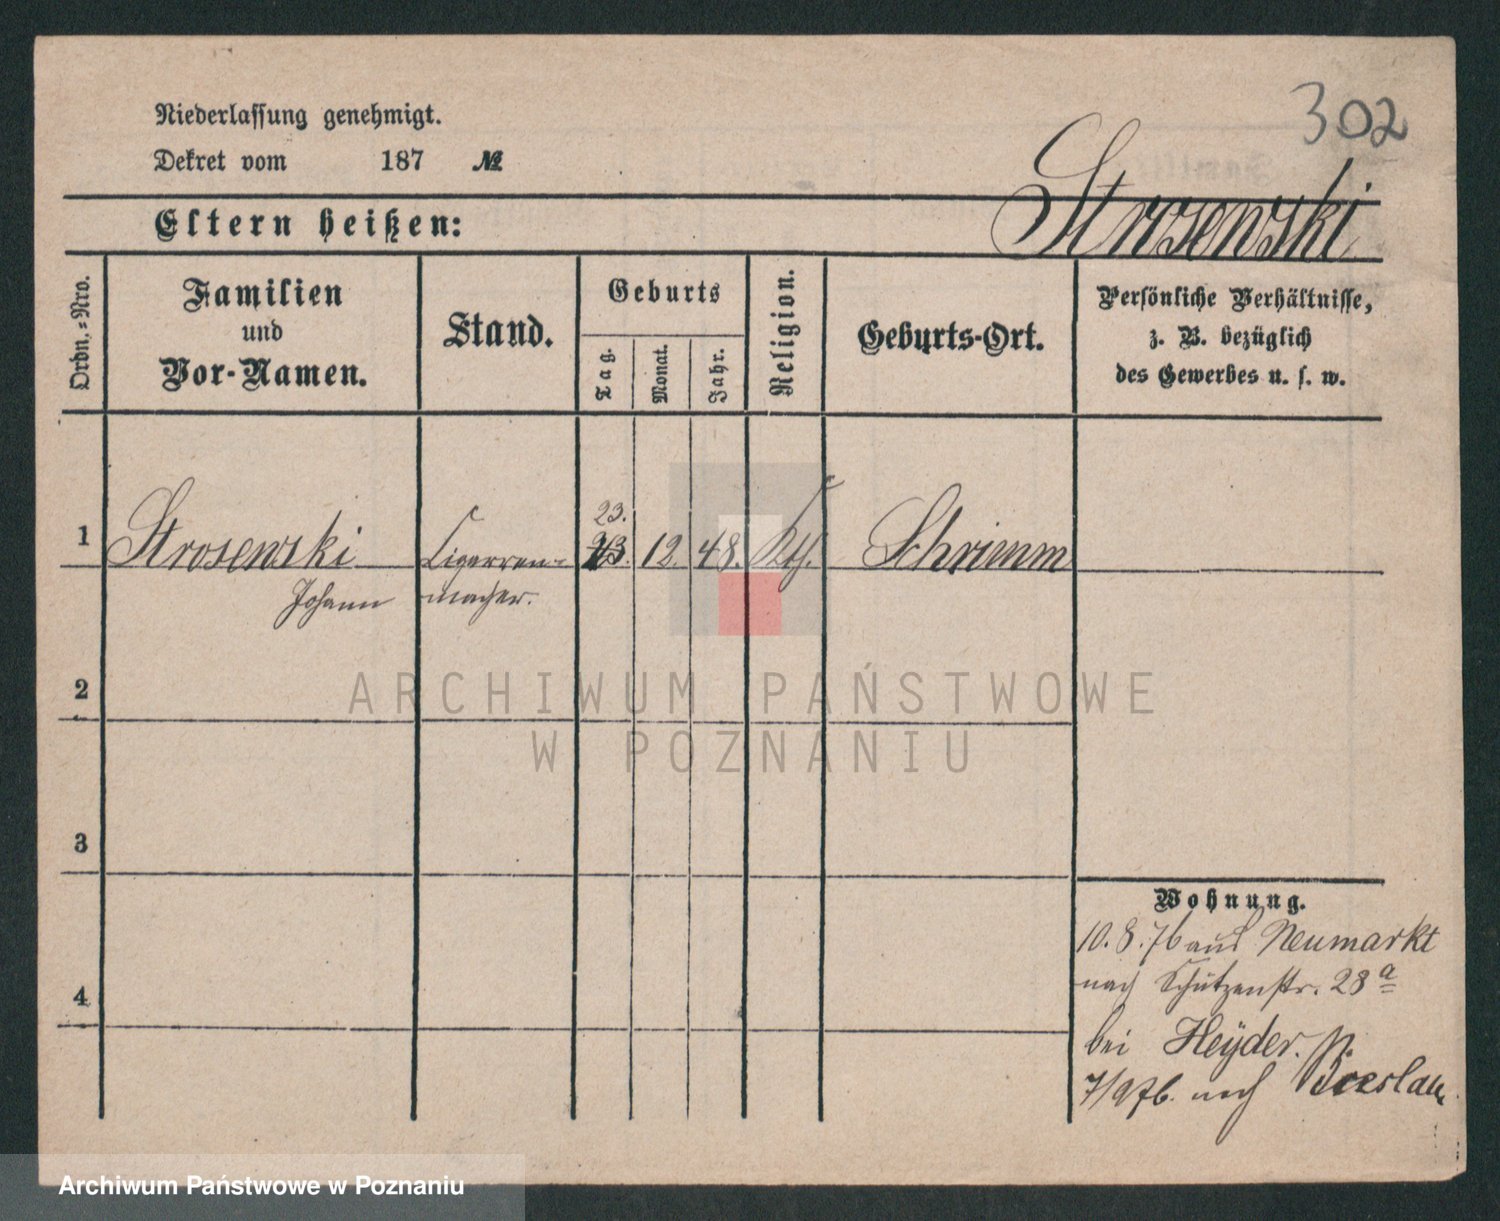 302
Niederlassung genehmigt.
Dekret vom 187 №
Strosewski
Eltern heißen:
Ordn.-Nro.
Familien
und
Vor-Namen.
Stand.
Geburts
Tag.
Monat.
Jahr.
Religion.
Geburts-Ort.
Persönliche Verhältnisse,
z. B. bezüglich
des Gewerbes u. s. w.
23.
1 Strosewski Cigarren- 23. 12. 48. Kth. Schrimm
Johann macher.
2
ARCHIWUM PAŃSTWOWE
W POZNANIU
3
Wohnung.
10.8.76 aus Neumarkt
nach Schützenstr. 28 a
bei Heÿder.
7/9 76. nach Breslau
4
Archiwum Państwowe w Poznaniu